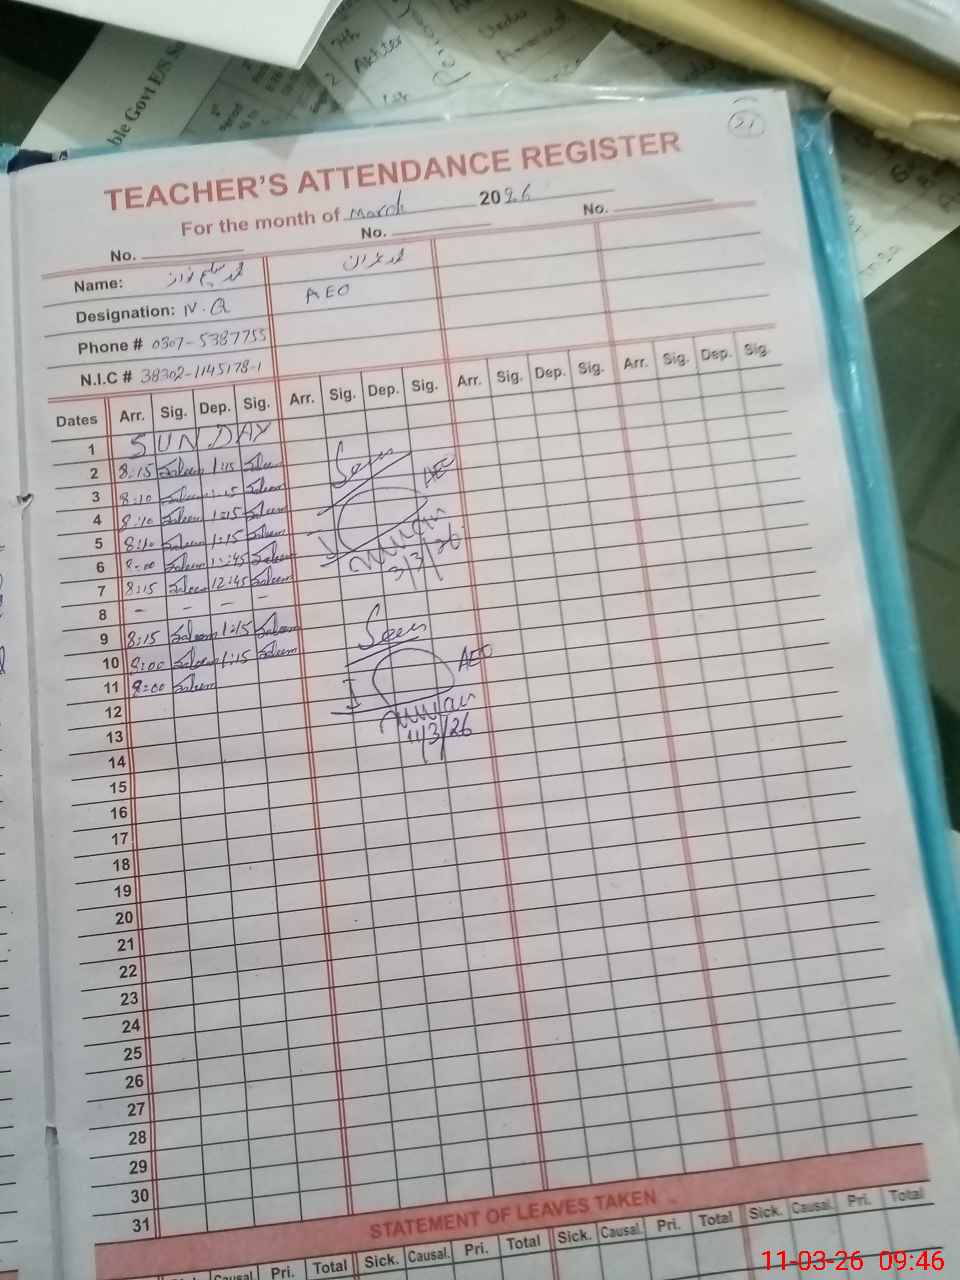 ble Govt E/S
7th
Akhter
Under
21
TEACHER'S ATTENDANCE REGISTER
For the month of March 2026
No. No. No.
Name: محمد سلیم نواز محمد عمران
Designation: N.Q AEO
Phone # 0307-5387755
N.I.C # 38302-1145178-1
Dates Arr. Sig. Dep. Sig. Arr. Sig. Dep. Sig. Arr. Sig. Dep. Sig. Arr. Sig. Dep. Sig.
1 SUNDAY
2 8:15 Saleem 1:15 Saleem Seen
3 8:10 Saleem 1:15 Saleem AEO
4 8:10 Saleem 1:15 Saleem
5 8:10 Saleem 1:15 Saleem
6 8:00 Saleem Saleem 3/3/26
7 8:15 Saleem 12:45 Saleem
8 - - - -
9 8:15 Saleem 1:15 Saleem Seen
10 8:00 Saleem 1:15 Saleem AEO
11 8:00 Saleem
12
13 11/3/26
14
15
16
17
18
19
20
21
22
23
24
25
26
27
28
29
30
31
STATEMENT OF LEAVES TAKEN
Causal Pri. Total Sick. Causal. Pri. Total Sick. Causal. Pri. Total Sick. Causal. Pri. Total
11-03-26 09:46